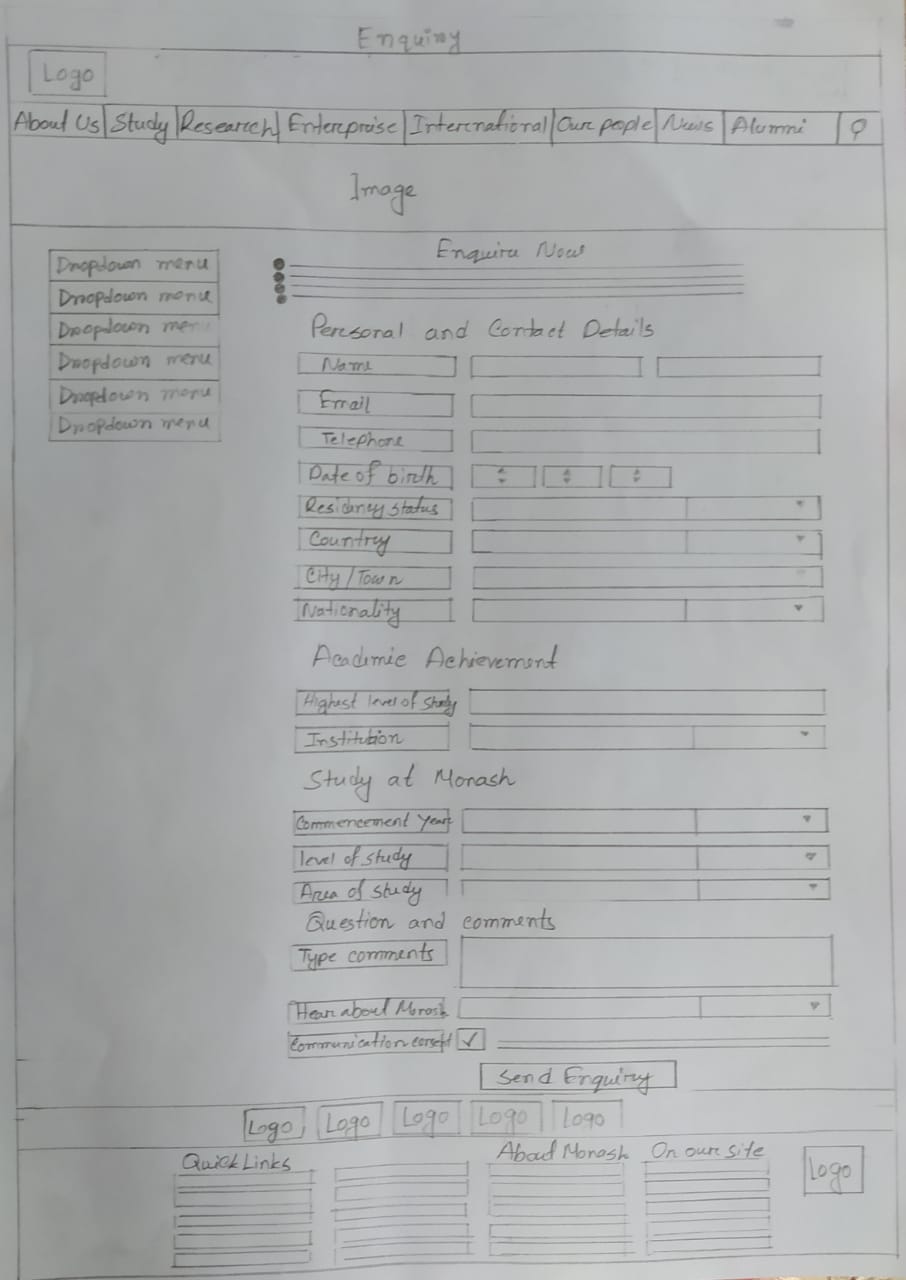 Enquiry
Logo
About Us Study Research Enterprise International Our people News Alumni
Image
Dropdown menu
Dropdown menu
Dropdown menu
Dropdown menu
Dropdown menu
Dropdown menu
Enquire Now
Personal and Contact Details
Name
Email
Telephone
Date of birth
Residency status
Country
City/Town
Nationality
Academic Achievement
Highest level of study
Institution
Study at Monash
Commencement Year
level of study
Area of study
Question and comments
Type comments
Hear about Monash
Communication consent
Send Enquiry
Logo Logo Logo Logo Logo
Quick Links About Monash On our site
Logo